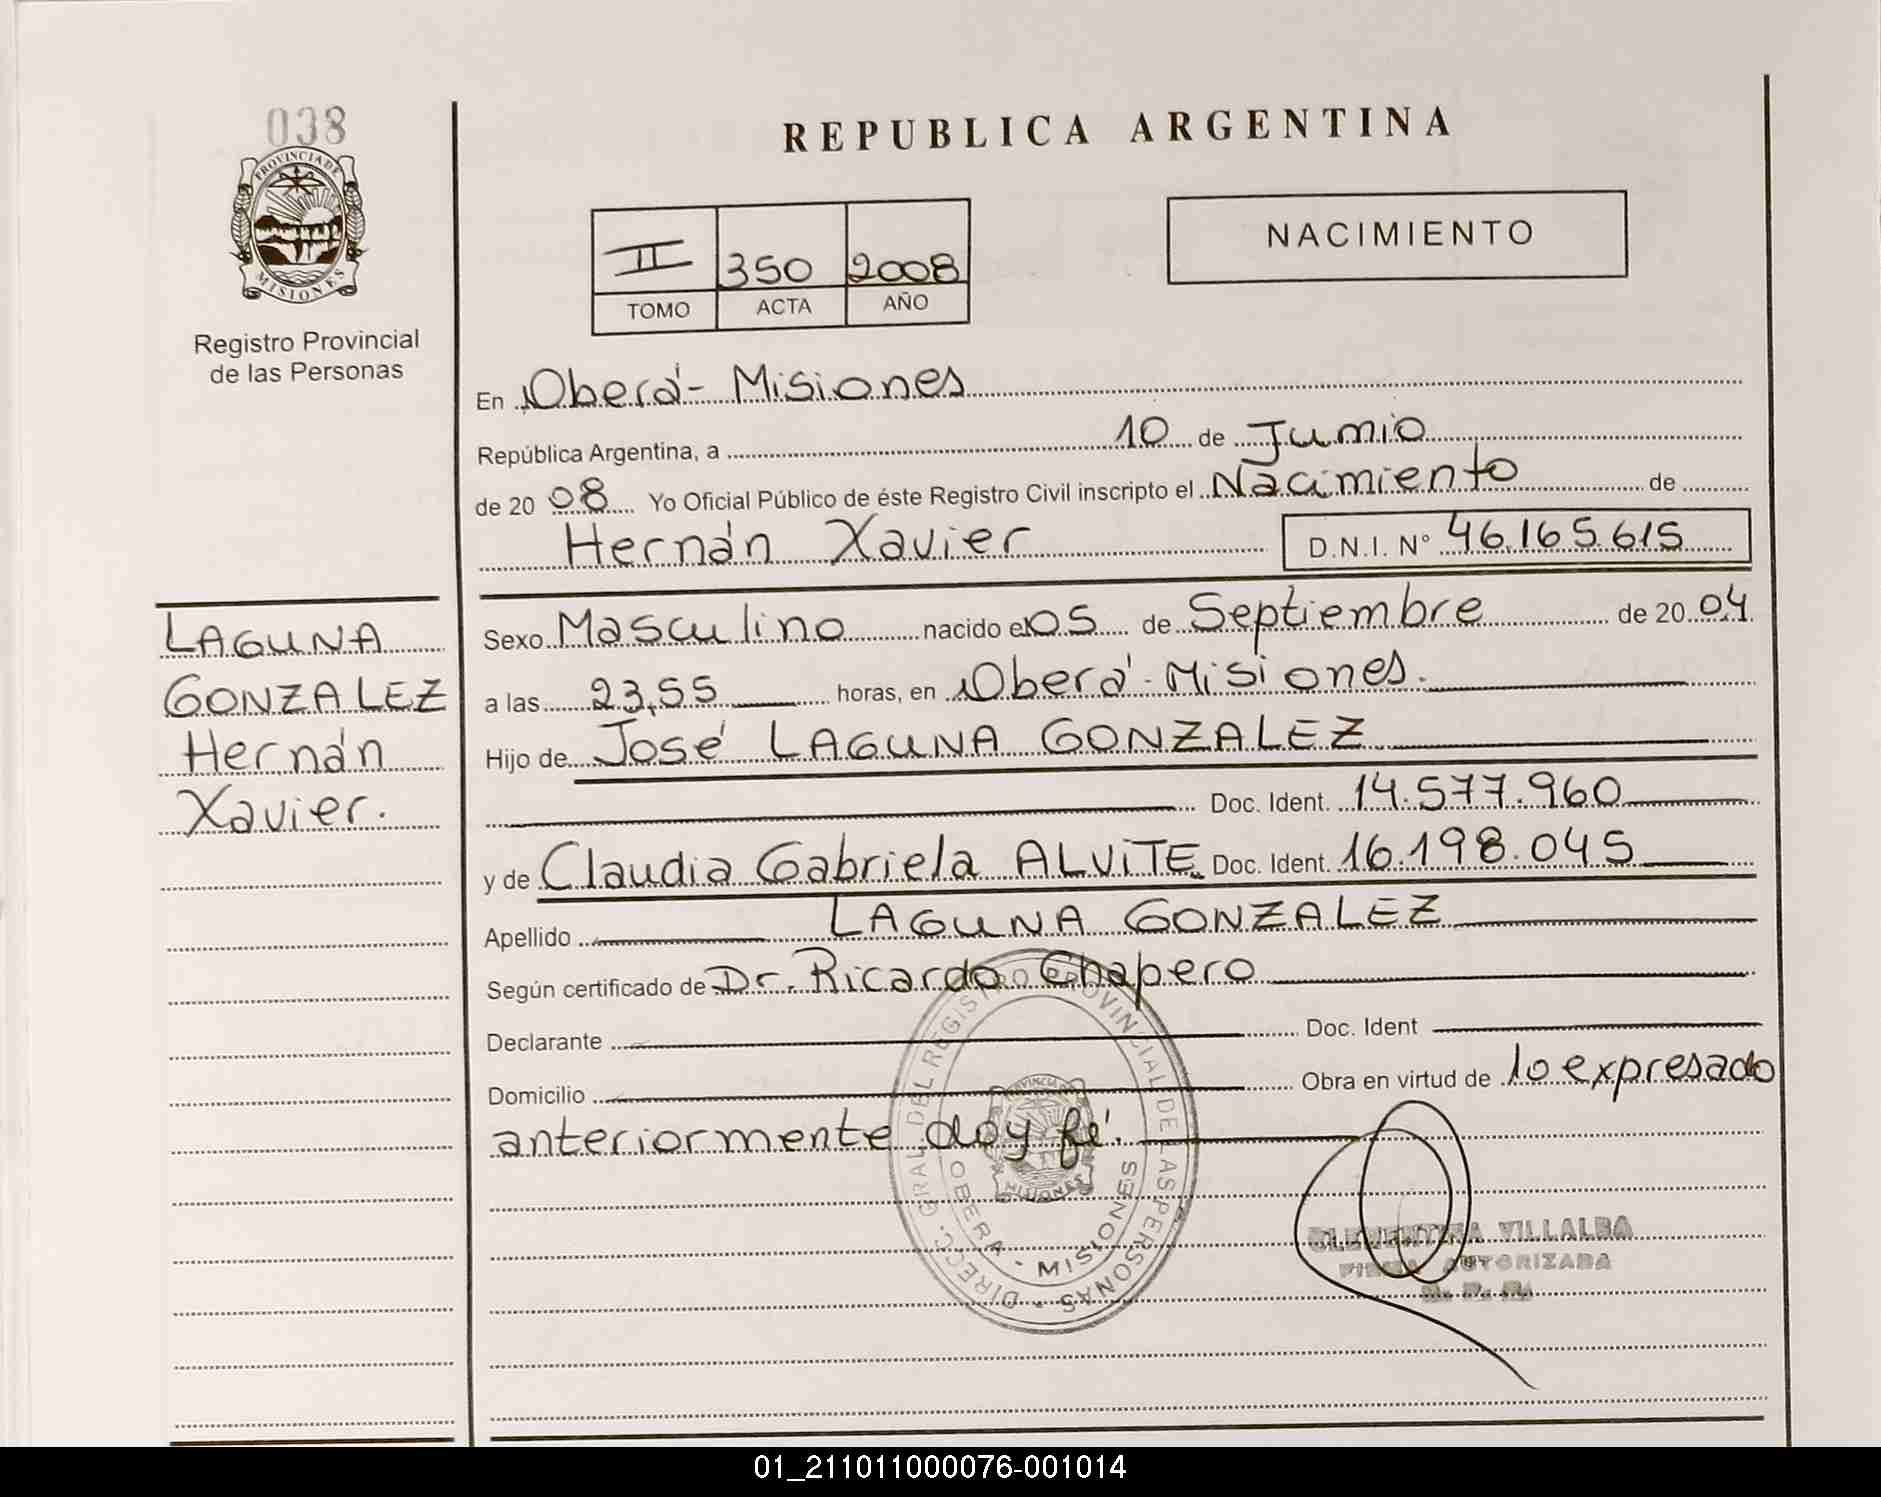 038
PROVINCIA DE
MISIONES
Registro Provincial
de las Personas
LAGUNA
GONZALEZ
Hernán
Xavier.
REPUBLICA ARGENTINA
II 350 2008
TOMO ACTA AÑO
NACIMIENTO
En Oberá - Misiones
República Argentina, a 10 de Junio
de 20 08 Yo Oficial Público de éste Registro Civil inscripto el Nacimiento de
Hernán Xavier D.N.I. N° 46.165.615
Sexo Masculino nacido el 05 de Septiembre de 20 04
a las 23,55 horas, en Oberá - Misiones.
Hijo de José LAGUNA GONZALEZ
Doc. Ident. 14.577.960
y de Claudia Gabriela ALViTE Doc. Ident. 16.198.045
Apellido LAGUNA GONZALEZ
Según certificado de Dr. Ricardo Chapero
Declarante Doc. Ident
Domicilio Obra en virtud de lo expresado
anteriormente doy fé.
DIRECC. GRAL. DEL REGISTRO PROVINCIAL DE LAS PERSONAS -
OBERA - MISIONES
PROVINCIA DE
MISIONES
CLEMENTINA VILLALBA
FIRMA AUTORIZADA
01_211011000076-001014